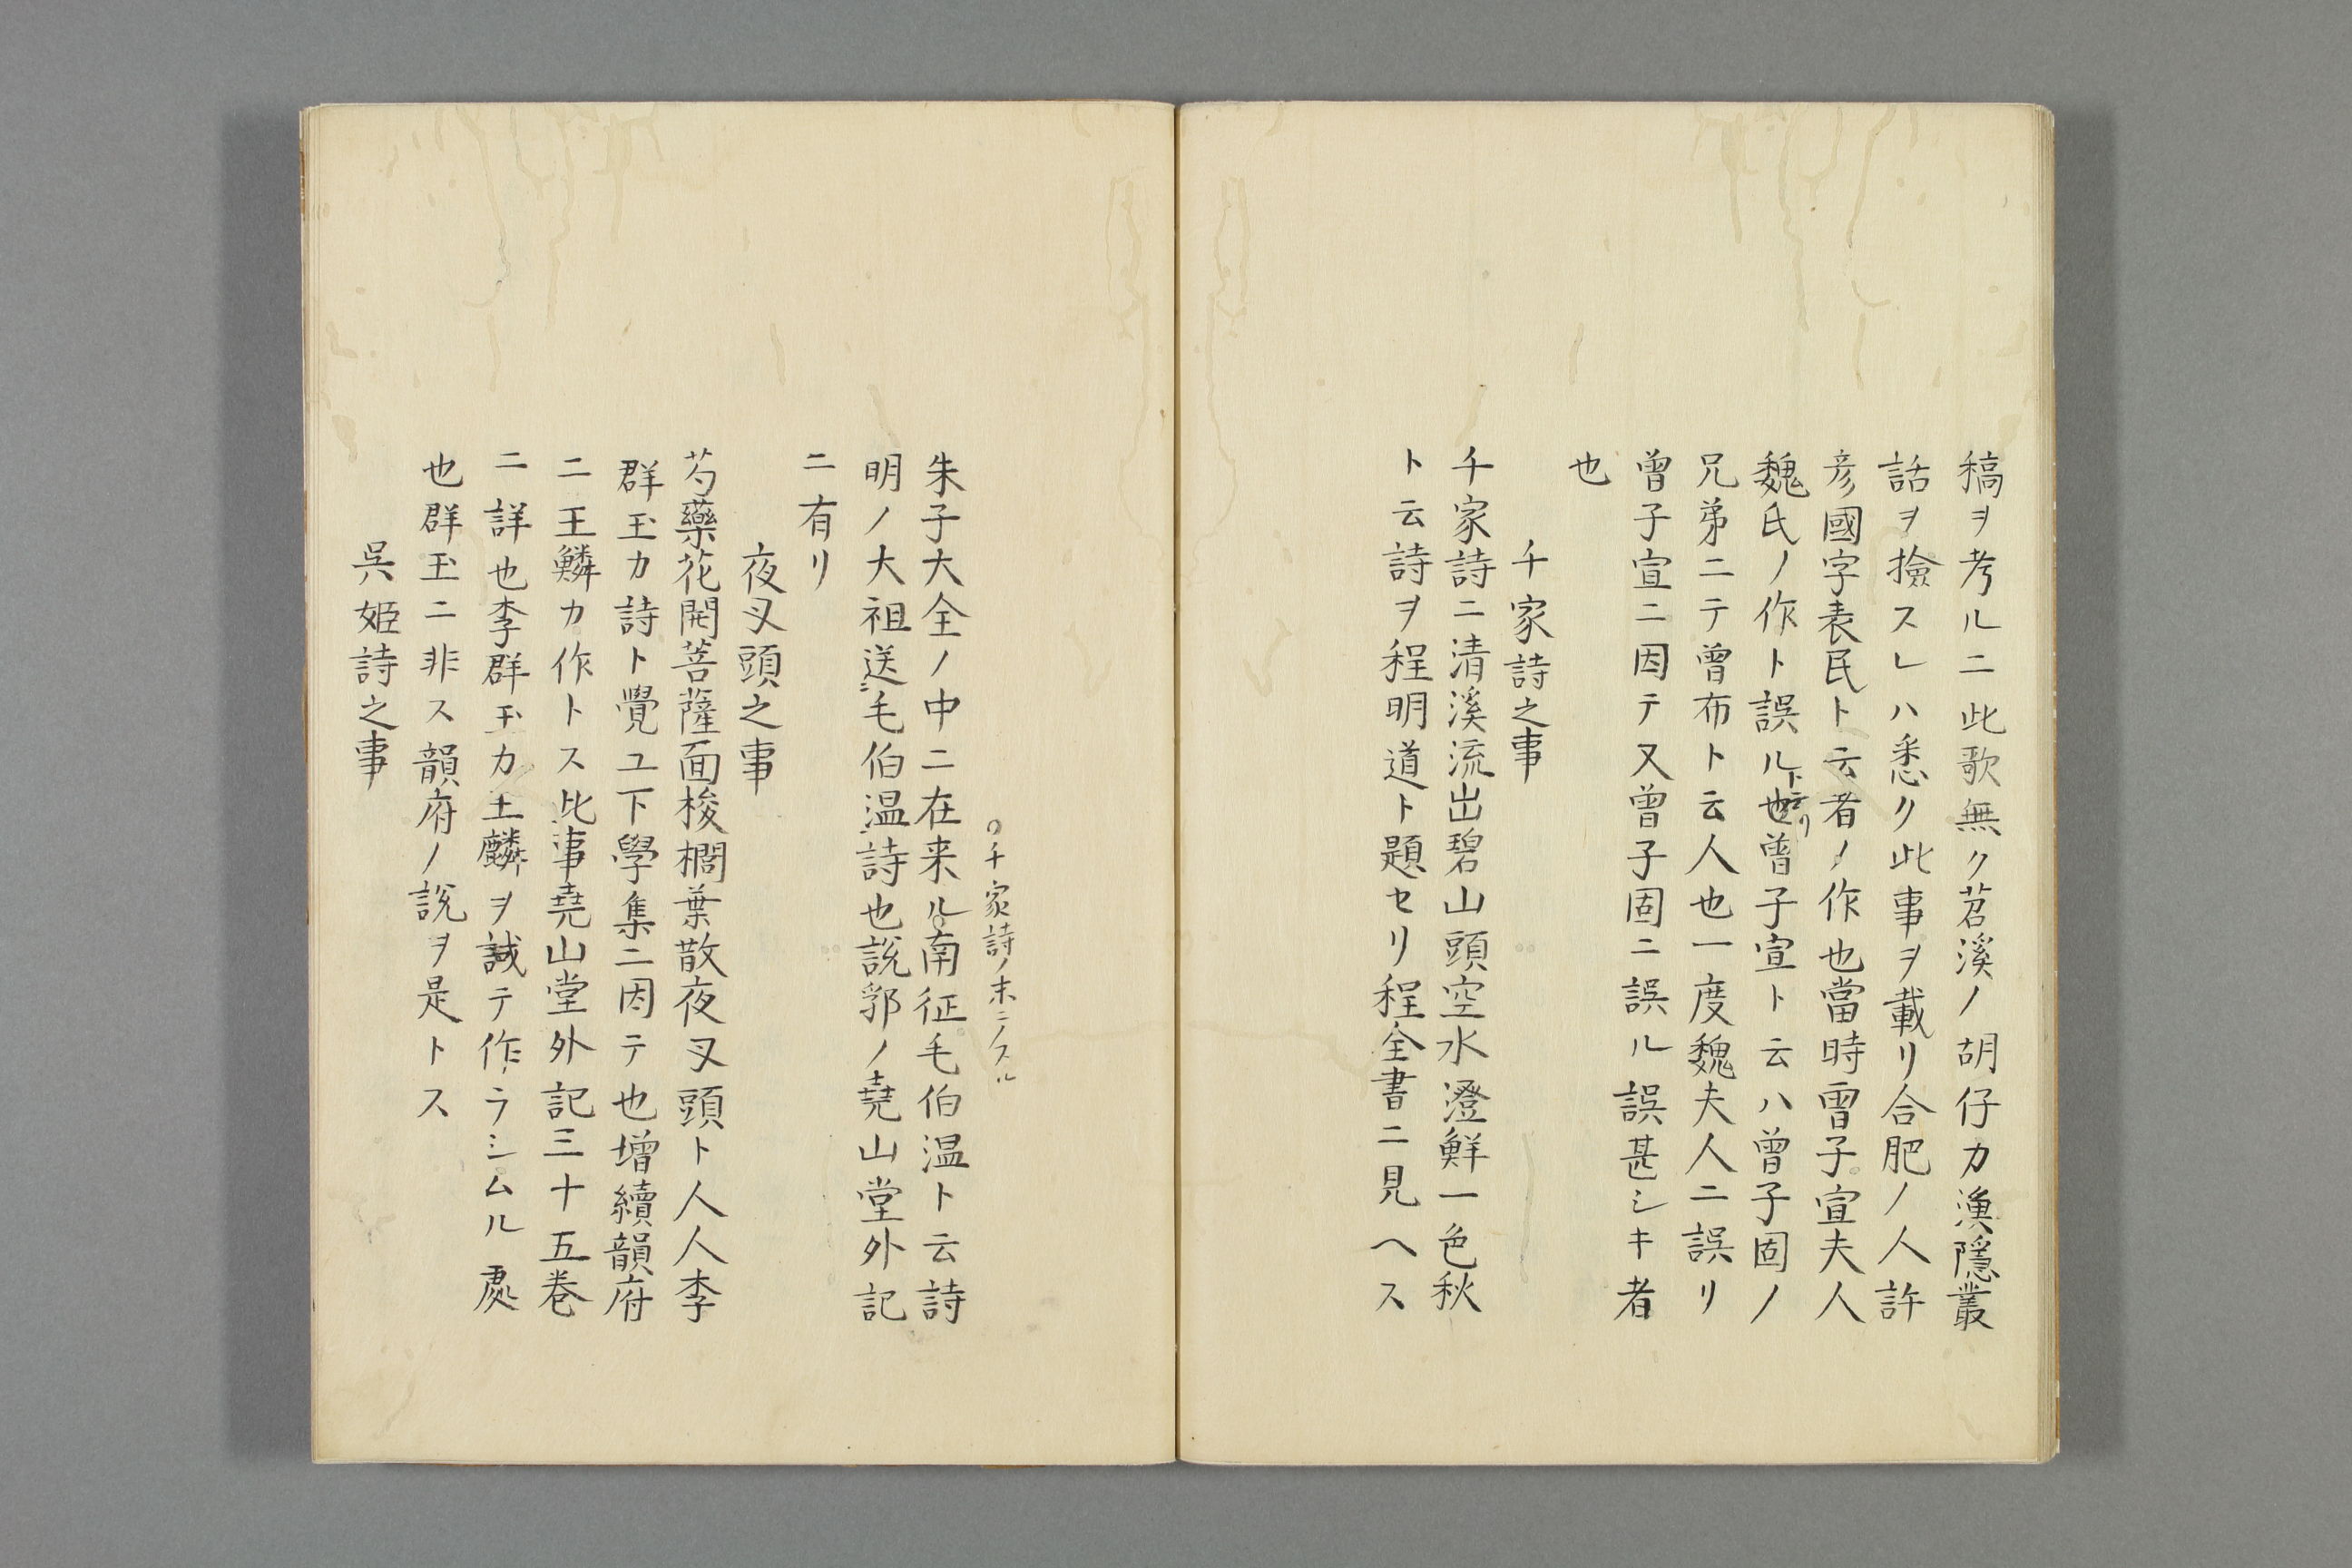 稿ヲ考ルニ此歌無ク苕溪ノ胡仔カ漁隱叢
話ヲ撿スレハ悉ク此事ヲ載リ合肥ノ人許
彦國字表民ト云者ノ作也當時曽子宣夫人
魏氏ノ作ト誤ル也曽子宣ト云ハ曽子固ノ
ト云リ
兄弟ニテ曽布ト云人也一度魏夫人ニ誤リ
曽子宣ニ因テ又曽子固ニ誤ル誤甚シキ者
也
千家詩之事
千家詩ニ清溪流出碧山頭空水澄鮮一色秋
ト云詩ヲ程明道ト題セリ程全書ニ見ヘス
○千家詩ノ末ニノスル
朱子大全ノ中ニ在来ル○南征毛伯温ト云詩
明ノ大祖送毛伯温詩也說郛ノ堯山堂外記
ニ有リ
夜叉頭之事
芍藥花開菩薩面椶櫚葉散夜叉頭ト人人李
群玉カ詩ト覺ユ下學集ニ因テ也增續韻府
ニ王鱗カ作トス此事堯山堂外記三十五巻
ニ詳也李群玉カ王麟ヲ誡テ作ラシムル處
也群玉ニ非ス韻府ノ說ヲ是トス
呉姫詩之事